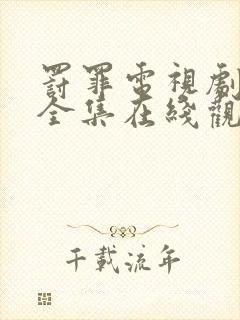 罸罪電視劇
全集在綫觀
千載流年